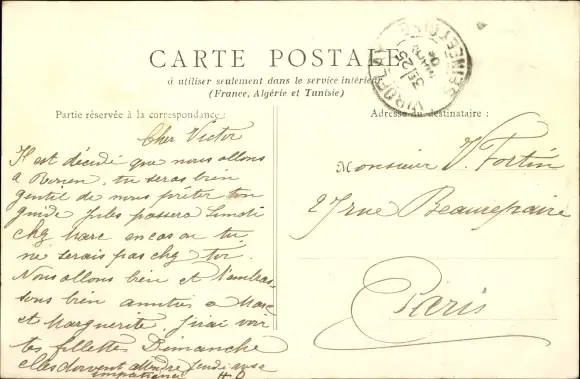 CARTE POSTALE
à utiliser seulement dans le service intérieur
(France, Algérie et Tunisie)
Partie réservée à la correspondance :
Adresse du destinataire :
Cher Victor
Il est décidé que nous allons
a Rouen, tu seras bien
gentil de nous prêter ton
guide Jules passera Lundi
chez Marc en cas ou tu
ne serais pas chez toi.
Nous allons bien et t'embras-
sons bien amitiés a Marc
et Marguerite. J'irai voir
tes fillettes Dimanche
elles doivent attendre jeudi avec
impatience
Monsieur V. Fortin
27 rue Beaurepaire
Paris
VIROFLAY
SEINE ET OISE
25